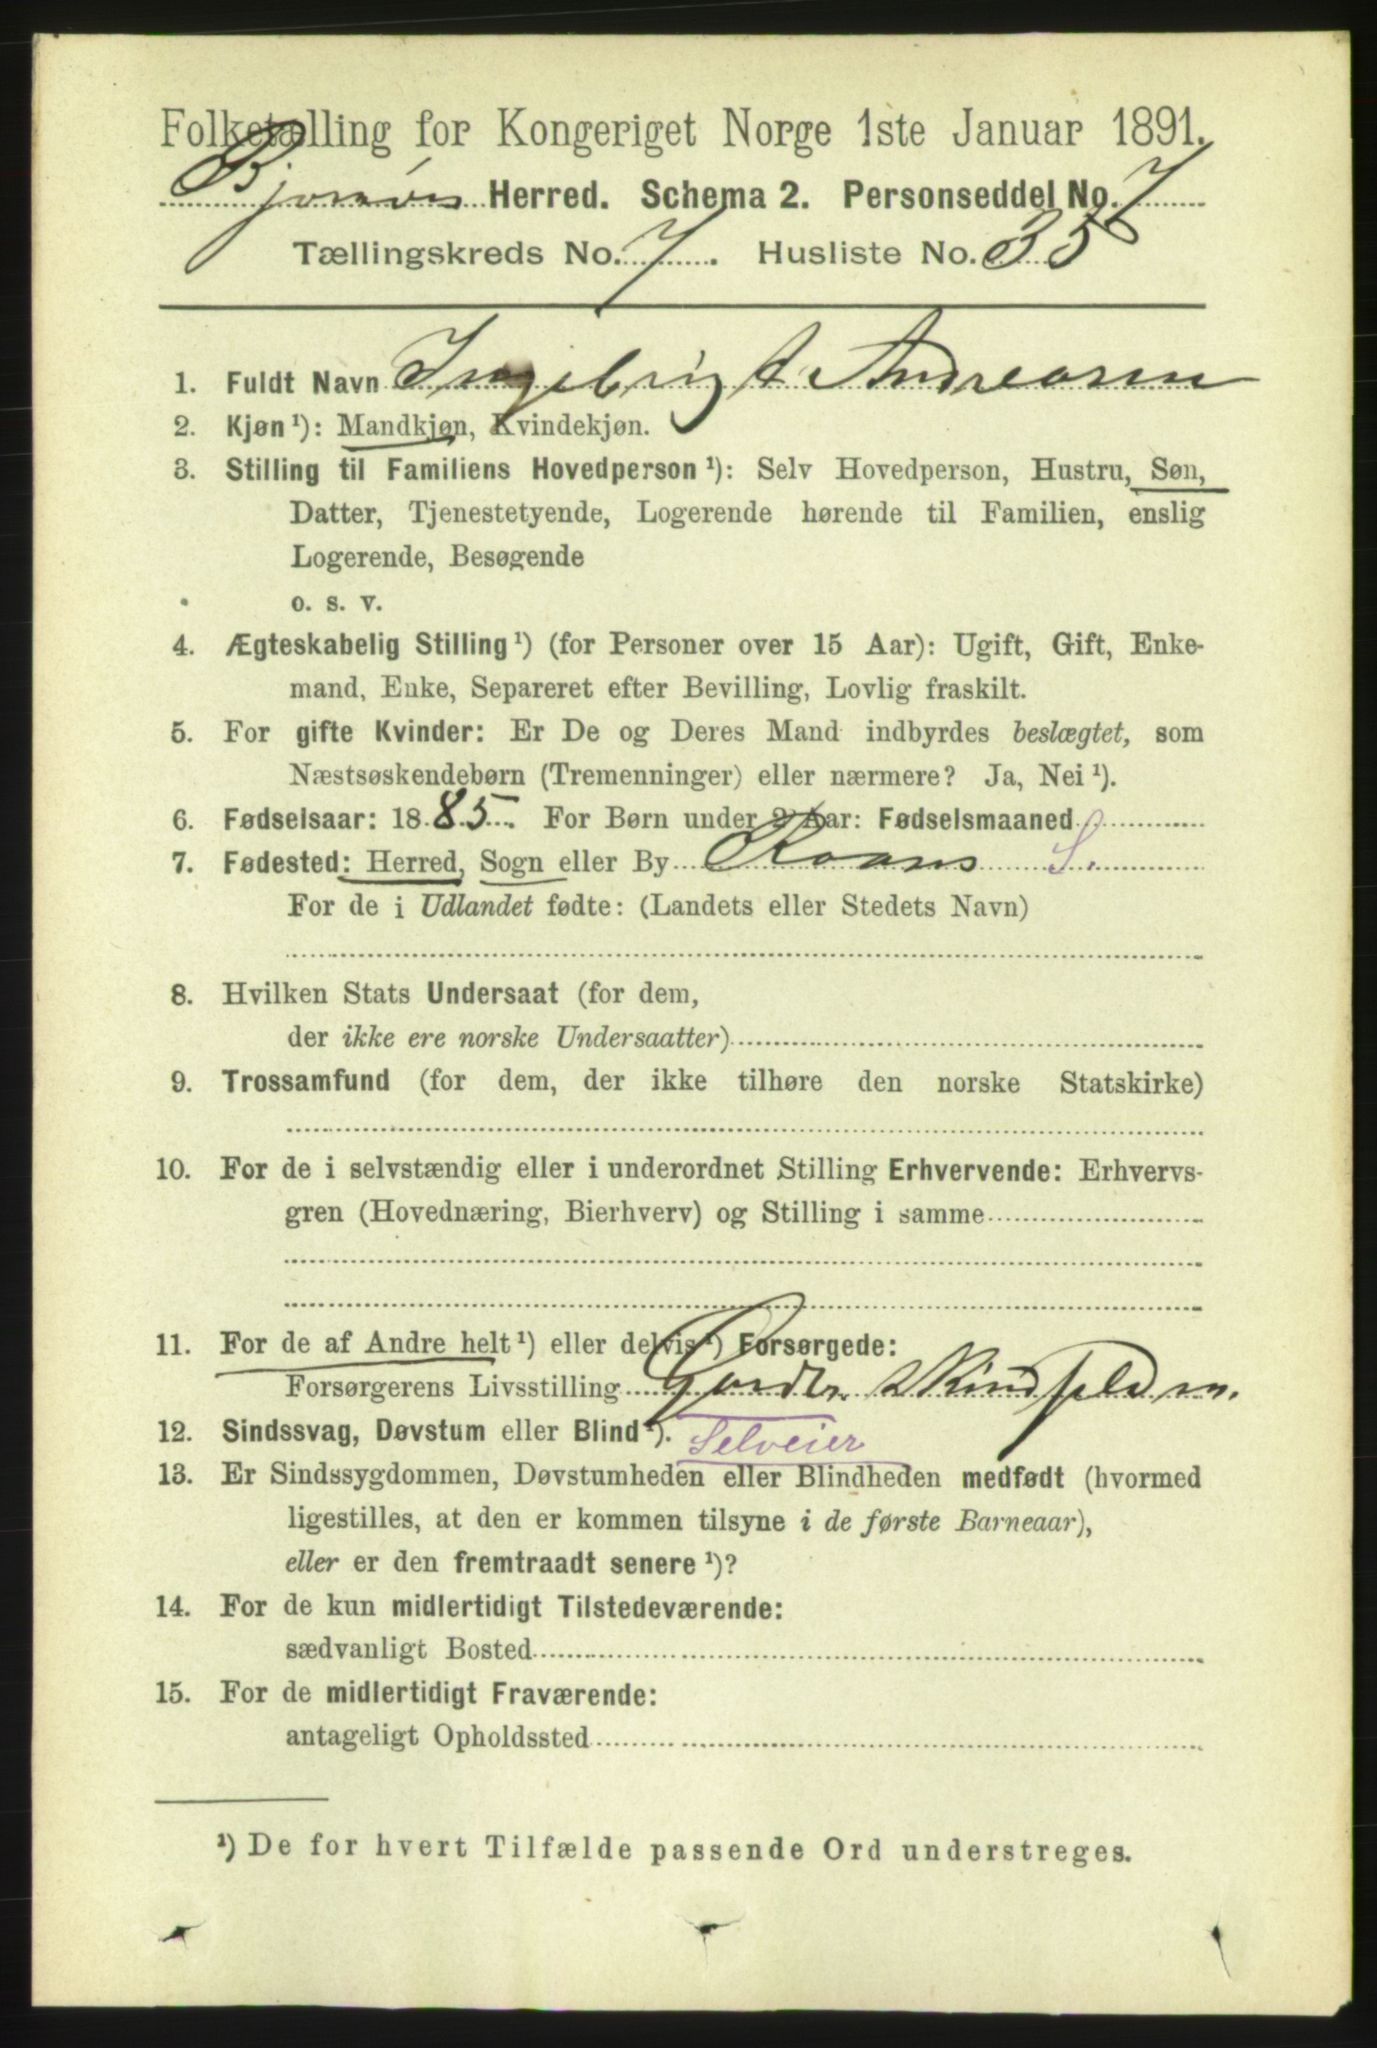 Folketælling for Kongeriget Norge 1ste Januar 1891.
Bjørnør Herred. Schema 2. Personseddel No. 7
Tællingskreds No. 7. Husliste No. 35
1. Fuldt Navn Ingebrigt Andreasen
2. Kjøn¹): Mandkjøn, Kvindekjøn.
3. Stilling til Familiens Hovedperson¹): Selv Hovedperson, Hustru, Søn,
Datter, Tjenestetyende, Logerende hørende til Familien, enslig
Logerende, Besøgende
o. s. v.
4. Ægteskabelig Stilling¹) (for Personer over 15 Aar): Ugift, Gift, Enke-
mand, Enke, Separeret efter Bevilling, Lovlig fraskilt.
5. For gifte Kvinder: Er De og Deres Mand indbyrdes beslægtet, som
Næstsøskendebørn (Tremenninger) eller nærmere? Ja, Nei¹).
6. Fødselsaar: 1885. For Børn under 2 Aar: Fødselsmaaned
7. Fødested: Herred, Sogn eller By Roans S.
For de i Udlandet fødte: (Landets eller Stedets Navn)
8. Hvilken Stats Undersaat (for dem,
der ikke ere norske Undersaatter)
9. Trossamfund (for dem, der ikke tilhøre den norske Statskirke)
10. For de i selvstændig eller i underordnet Stilling Erhvervende: Erhvervs-
gren (Hovednæring, Bierhverv) og Stilling i samme
11. For de af Andre helt¹) eller delvis¹) Forsørgede:
Forsørgerens Livsstilling
12. Sindssvag, Døvstum eller Blind¹). Selveier
13. Er Sindssygdommen, Døvstumheden eller Blindheden medfødt (hvormed
ligestilles, at den er kommen tilsyne i de første Barneaar),
eller er den fremtraadt senere¹)?
14. For de kun midlertidigt Tilstedeværende:
sædvanligt Bosted
15. For de midlertidigt Fraværende:
antageligt Opholdssted
¹) De for hvert Tilfælde passende Ord understreges.